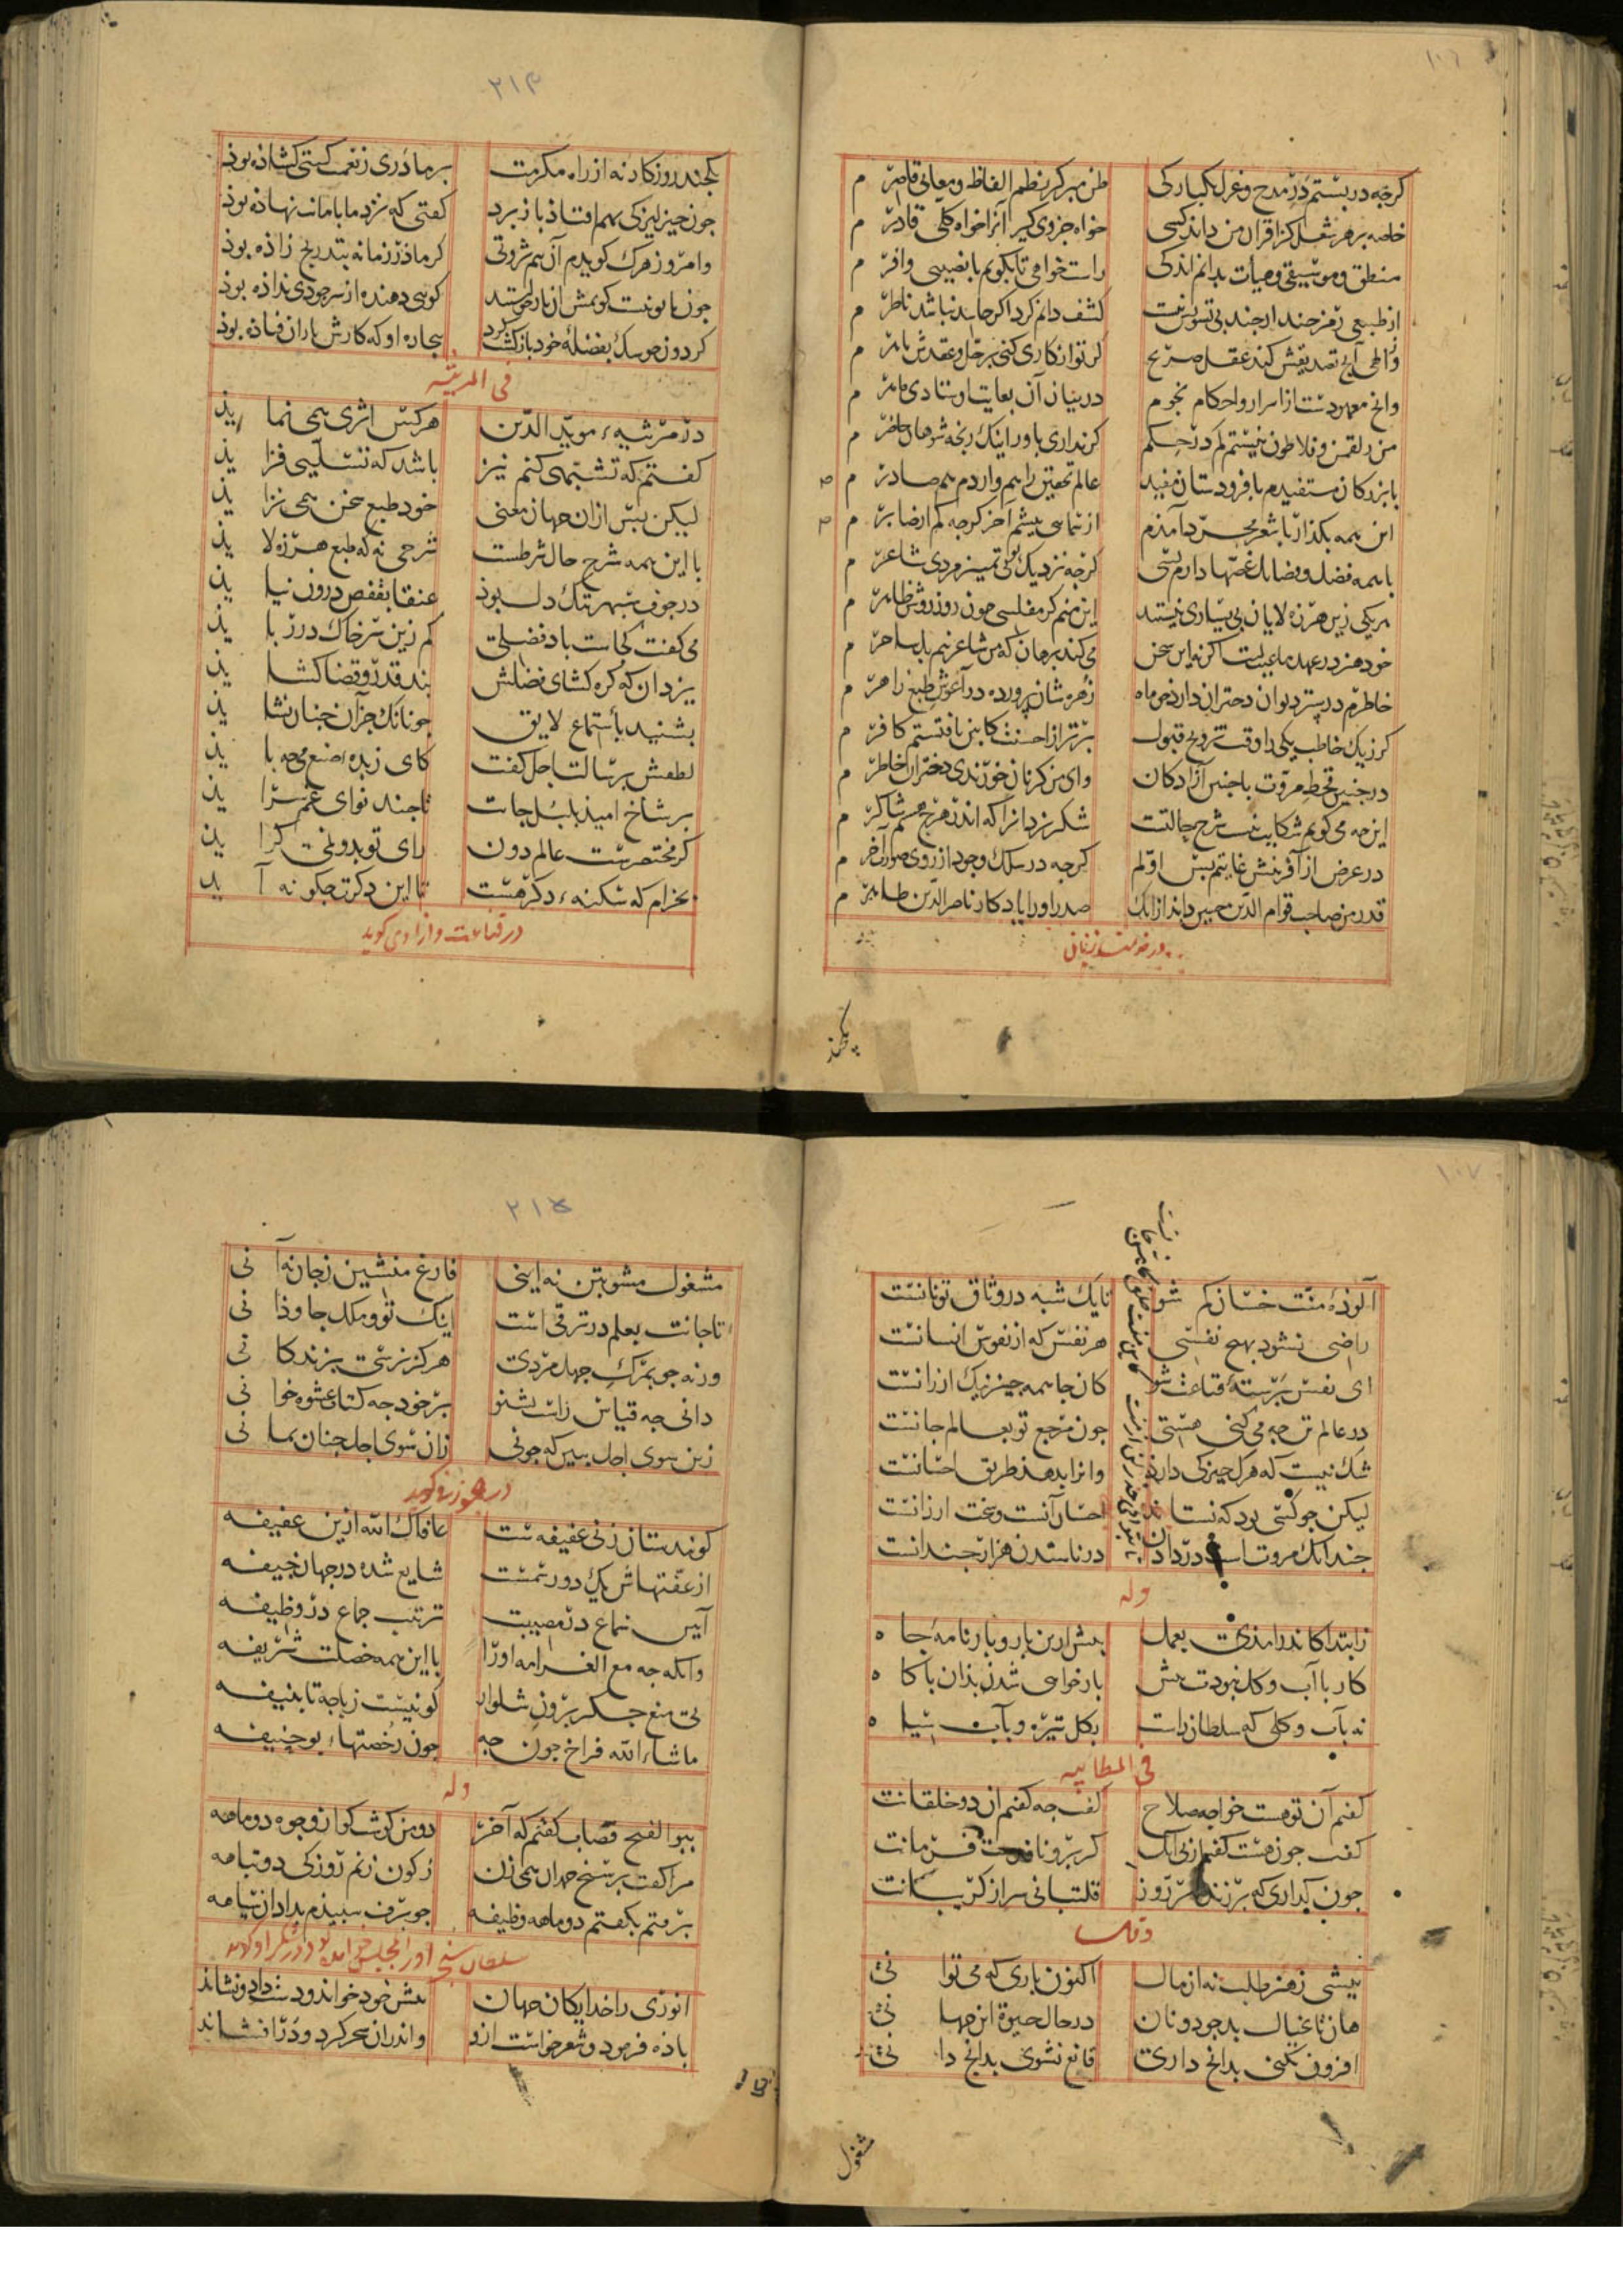 ۱۰۶
گرچه دربستم در مدح و غزل یکبارگی ظن مبر کز نظم الفاظ و معانی قاصر م
خاصه بر هر شغل کز اقران من داند کسی خواه جزوی گیر آنرا خواه کلی قادر م
منطق و موسیقی و هیأت بدانم اندکی راست خواهی تا بگویم با نصیبی وافر م
از طبیعی رمز چند ار چند بی تشویر نیست کشف دانم کرد اگر حاسد نباشد ناظر م
والهی آنچ تصدیقش کند عقل صریح گر تو انکاری کنی بر حل و عقدش ماهر م
وانچ معهودست از اسرار و احکام نجوم در بیان آن بغایت اوستادی ماهر م
من ز لقمن و فلاطون نیستم کم در حکم گر نداری باور اینک رنجه شو من حاضر م
با بزرگان مستفیدم با فرودستان مفید عالم تحقیق را هم واردم هم صادر م
این همه بگذار با شعر مجرد آمدم از سنایی بیشم آخر گرچه کم از صابر م
با همه فضل و فضایل غصها دارم بسی گرچه نزدیک تو بی تمییز مردی شاعر م
هر یکی زین هرزه لایان بی یساری نیستند این منم کز مفلسی چون روز روشن ظاهر م
خود هنر در عهد ما عیبست اگر نه این سخن می کند برهان که من شاعر نیم بل ساحر م
خاطرم در ستر دیوان دختران دارد چو ماه زهره شان پرورده در آغوش طبع زاهر م
گر ز یک خاطب یکی را وقت تزویج قبول برتر از احسنت کابین یافتستم کافر م
در چنین قحط مروت با چنین آزادگان وای من گر نان خورندی دختران خاطر م
این چه می گویم شکایت نیست شرح حالتست شکر یزدانرا که اندر هرچ هستم شاکر م
در عرض از آفرینش غایتم پس اولم گرچه در سلک وجود از روی صورت آخر م
قدر من صاحب قوام الدین حسین داند از آنک صدر او را یادگار ناصر الدین طاهر م
در خرسندی زنان
یکچند
۲۱۴
یکچند روزگار نه از راه مکرمت بر ما دری ز نعمت گیتی گشاده بود
چون چیزکی بهم افتاد باز برد گفتی که نزد ما بامانت نهاده بود
وامروز هرک گویدم آن هم ثروتی کز ماذر زمانه بتدریج زاذه بود
چون با تو نیست گویمش از باز می ستد گویی دهنده از سر جودی نداده بود
گردون چو سگ بفضله خود بازگشت کرد بیچاره او که کارش با آن فتاذه بود
فی المرثیه
در مرثیه مؤید الدین هر کس اثری همی نما ید
گفتم که تشبهی کنم نیز باشد که تسلیی فزا ید
لیکن پس از آن جهان معنی خود طبع سخن همی نزا ید
با این همه شرح حال شرطست شرحی نه که طبع هرزه لا ید
در جوف سپهر تنگ دل بود عنقا بقفص درون نیا ید
می گفت کجاست باد فضلی کم زین سر خاک در ربا ید
یزدان که گره گشای فضلش بند قدر و قضا گشا ید
بشنید باستماع لایق چونانک جز آن چنان نشا ید
لطفش برسالت اجل گفت کای زبده صنع می چه با ید
بر شاخ امید بلبل جانت تا چند نوای غم سرا ید
گر مختصرست عالم دون رای تو بدو نمی گرا ید
بخرام که شکنه دگر هست تا این دگرت چگونه آ ید
در قناعت و آزادی گوید
۱۰۷
آلوده منت خسان کم شو تا یک شبه در وثاق تو نانست
راضی نشود بهیچ نفسی هر نفس که از نفوس انسانست
ای نفس برسته قناعت شو کان جا همه چیز نیک ارزانست
در عالم تن چه می کنی هستی چون مرجع تو بعالم جانست
شک نیست که هرک چیزکی دارد وانرا بدهد طریق احسانست
لیکن چو کسی بود که نستاند احسان آنست و سخت ارزانست
چندانک مروت است در دادن در ناستدن هزار چندانست
وله
ز ابتدا کاندر آمدی بعمل بیش ازین بار و بارنامه جا ه
کار با آب و گل نبودت بیش باز خواهی شدن بذان پاکا ه
نه بآب و گلی که سلطان راست بگل تیره و بآب سیا ه
فی المطایبه
گفتم آن تو هست خواجه صلاح گفت چه گفتم آن دو خلقانت
گفت چون هست گفتم از پی آنک کز برون نافذست فرمانت
چون نداری که برزند هر روز قلتبانی سر از گریبانت
وقال
بیشی ز هنر طلب نه از مال اکنون باری که می توا نی
هان تا غیال بد چو دونان در حال حیوة این جها نی
افزون نکنی بدانچ داری قانع نشوی بدانچ دا نی
مشغول
۲۱۵
مشغول مشو بتن نه اینی فارغ منشین ز جان نه آ نی
تا جانت بعلم در ترقی است اینک تو و ملک جاوذا نی
ورنه چو بمرگ جهل مردی هرگز نرسی بزندگا نی
دانی چه قیاس راست بشنو بر خود چه کتاب عشوه خوا نی
زین سوی اجل ببین که چونی زان سوی اجل چنان بما نی
در هجو زن گوید
گویند ستان زنی عفیفه ست عافاک الله ازین عفیفه
از عفتهاش یک دو رسمست شایع شده در جهان خیفه
آیین سماع در مصیبت ترتیب جماع در وظیفه
وانگه چه مع الغرامه او را با این همه خصلت شریفه
بی میغ جگر برون شلوار گو نیست زباجه تا بنیفه
ماشاء الله فراخ چون چه چون رخصتهاء بوحنیفه
وله
ببو الفتح قصاب گفتم که آخر دو من گوشت کو از وجوه دو ماهه
مرا گفت بر سنخ چندان همی زن رگون زنم روزکی دو تبامه
برفتم بگفتم دو ماهه وظیفه چو برف سپیدم بداد آن سیامه
انوری را خدایگان جهان پیش خود خواند و دست داد و نشاند
باده فرمود و شعر خواست ازو واندران سحر کرد و در افشاند